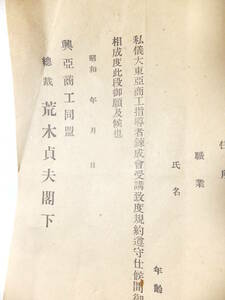 住所
職業
氏名
年齡
私儀大東亞商工指導者鍊成會受講致度規約遵守仕候間御
相成度此段御願及候也
昭和　年　月　日
興亞商工同盟
總裁　荒木貞夫閣下